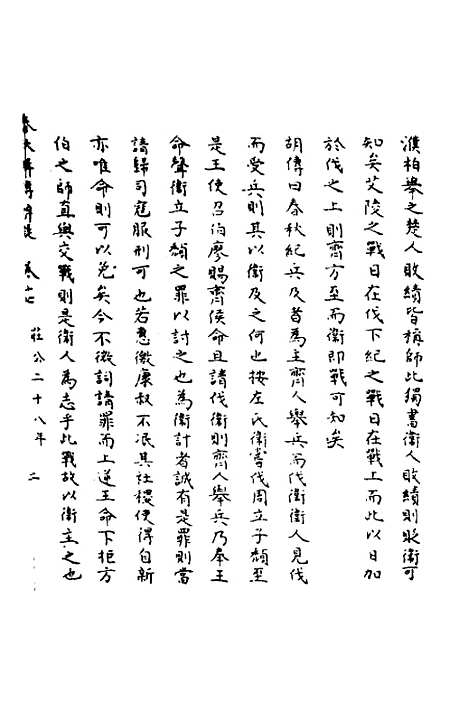 濮柏舉之楚人敗績皆稱師此獨書衛人敗績則眨衛可
知矣艾陵之戰日在伐下紀之戰日在戰上而此以日加
於伐之上則齊方至而衛即戰可知矣
胡傳曰春秋紀兵及者為主齊人舉兵而伐衛衛人見伐
而受兵則其以衛及之何也按左氏衛嘗伐周立子頽至
是王使召伯廖賜齊侯命且請伐衛則齊人舉兵乃奉王
命聲衛立子頽之罪以討之也為衛計者誠有是罪則當
請歸司寇服刑可也若惠徼康叔不泯其社稷使得自新
亦唯命則可以免矣今不徵詞請罪而上逆王命下拒方
伯之師直與交戰則是衛人為志乎此戰故以衛主之也
春秋 卷十七
莊公二十八年
二